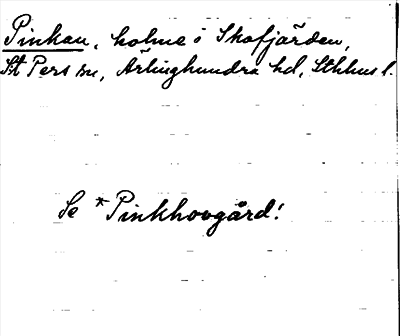 Pinkan, holme i Skofjärden,
St Pers sn, Ärlinghundra hd, Sthhus l.
Se *Pinkhovgård!